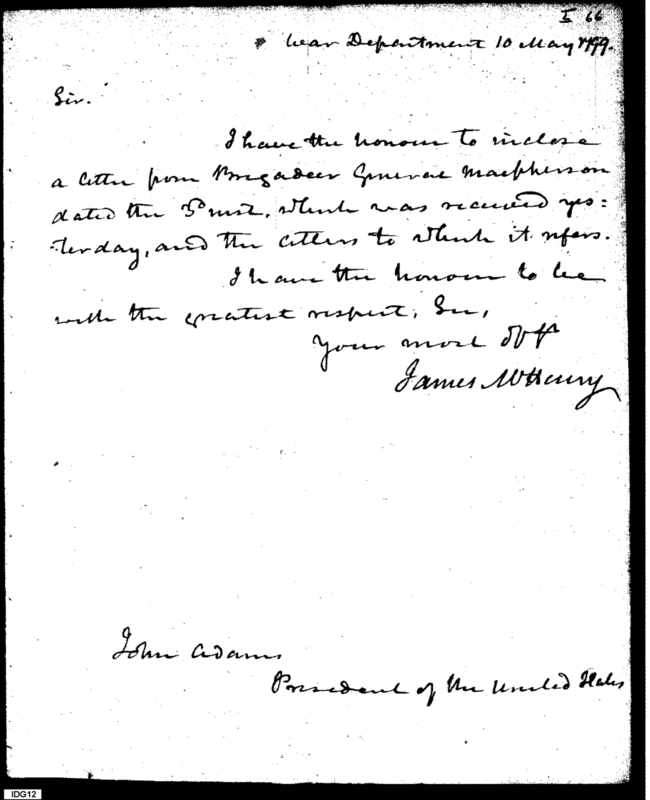 I 66
War Department 10 May 1799.
Sir.
I have the honour to inclose
a letter from Brigadeer General Macpherson
dated the inst. which was received yes:
:terday, and the letters to which it refers.
I have the honour to be
with the greatest respect, Sir,
Your most obt
James McHenry
John Adams
President of the United States
IDG12